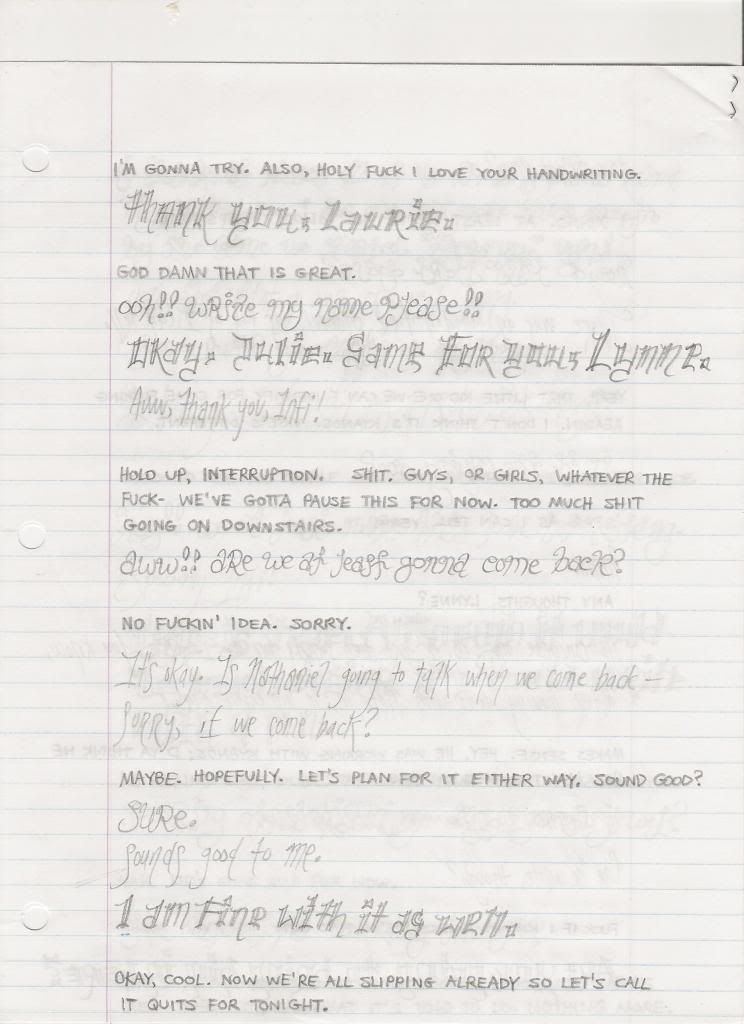 I'M GONNA TRY. ALSO, HOLY FUCK I LOVE YOUR HANDWRITING.
Thank you, Laurie.
GOD DAMN THAT IS GREAT.
ooh!! write my name please!!
Okay. Julie. Same for you, Lynne.
Aww, thank you, Infi!
HOLD UP, INTERRUPTION. SHIT. GUYS, OR GIRLS, WHATEVER THE
FUCK- WE'VE GOTTA PAUSE THIS FOR NOW. TOO MUCH SHIT
GOING ON DOWNSTAIRS.
aww!! are we at least gonna come back?
NO FUCKIN' IDEA. SORRY.
It's okay. Is Nathaniel going to talk when we come back —
sorry, if we come back?
MAYBE. HOPEFULLY. LET'S PLAN FOR IT EITHER WAY. SOUND GOOD?
SURe.
sounds good to me.
I am fine with it as well.
OKAY, COOL. NOW WE'RE ALL SLIPPING ALREADY SO LET'S CALL
IT QUITS FOR TONIGHT.